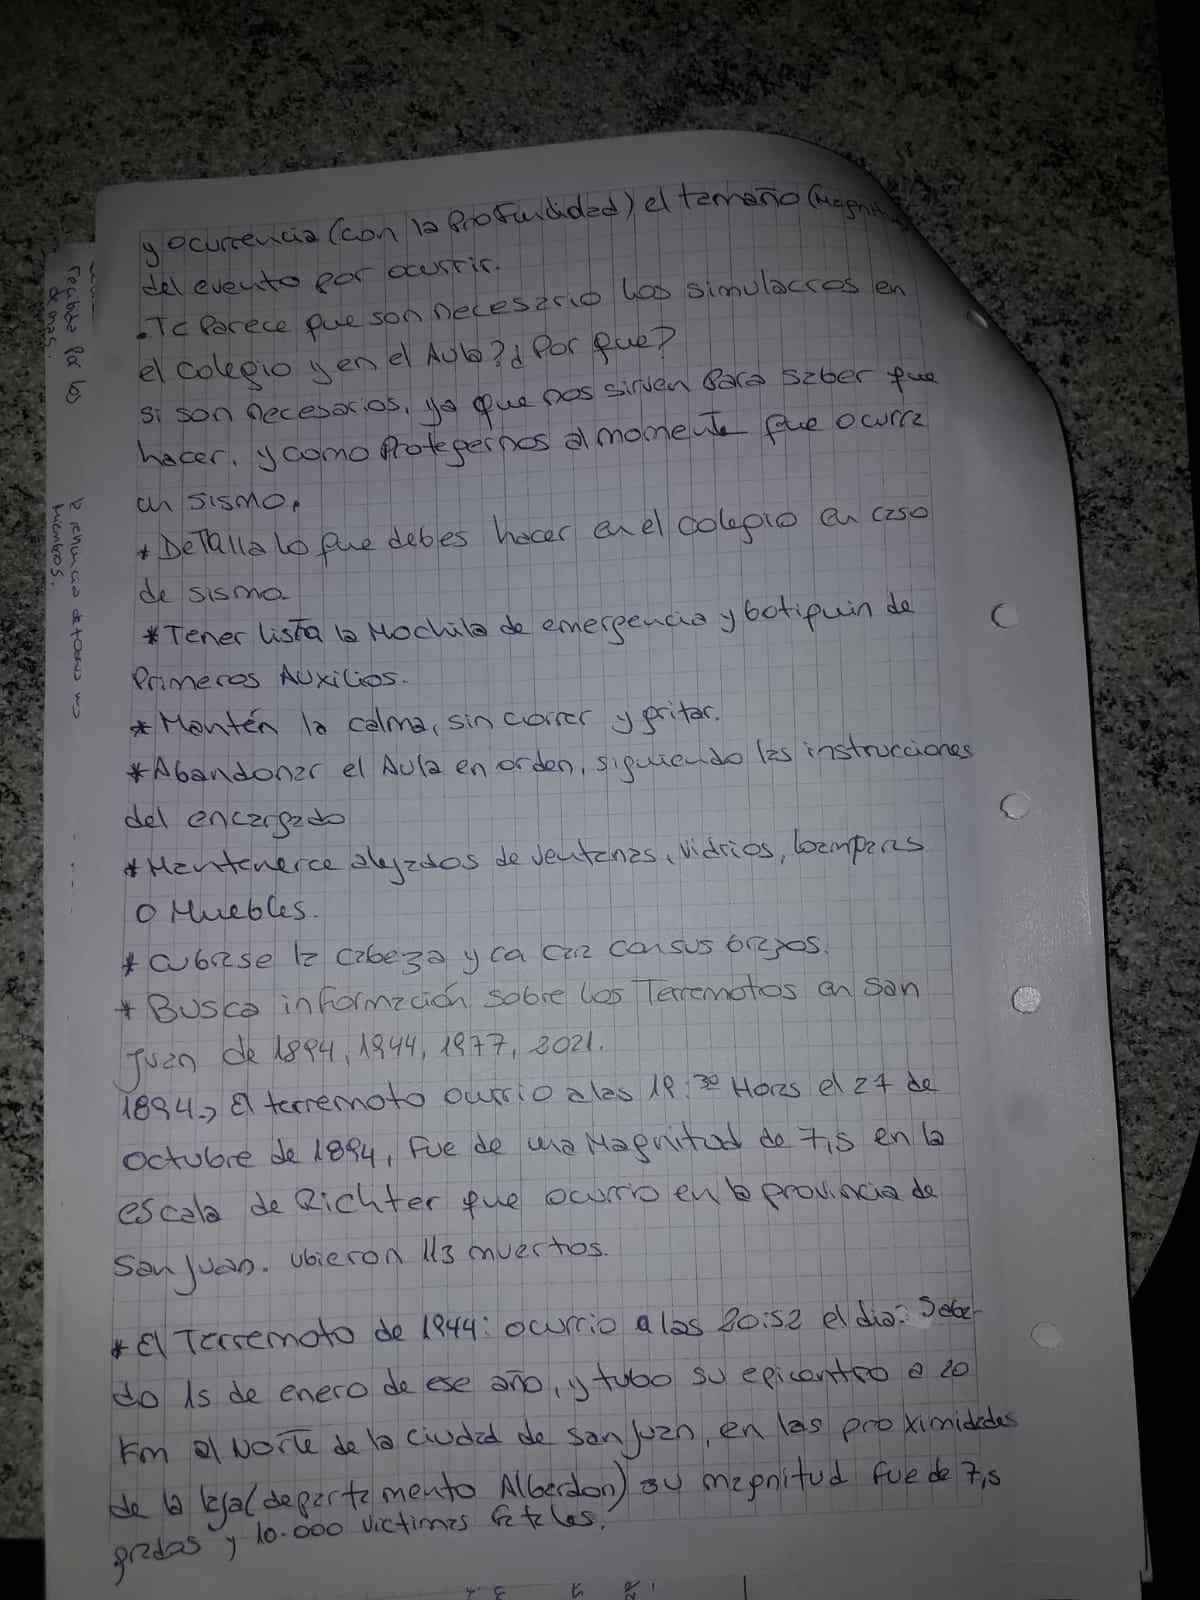 y ocurrencia (con la profundidad) el tamaño (Magnitu
del evento por ocurrir.
.Te parece que son necesario los simulacros en
el colegio y en el Aula? ¿Por que?
si son necesarios, ya que nos sirven para saber que
hacer, y como Protegernos al momento que ocurra
un sismo.
* Detalla lo que debes hacer en el colegio en caso
de sismo.
* Tener lista la Mochila de emergencia y botiquin de
Primeros Auxilios.
* Mantén la calma, sin correr y gritar.
* Abandonar el Aula en orden, siguiendo las instrucciones
del encargado
* Mantenerce alejados de ventanas, vidrios, lamparas
o Muebles.
* cubrase la cabeza y ca cara con sus brazos.
* Busca información sobre los Terremotos en San
Juan de 1894, 1944, 1977, 2021.
1894.-> El terremoto ourrio a las 19:30 Horas el 27 de
Octubre de 1894, Fue de una Magnitud de 7,5 en la
escala de Richter que ocurrio en la provincia de
San Juan. ubieron 113 muertos.
* El Terremoto de 1944: ocurrio a las 20:52 el dia: Saba-
do 15 de enero de ese año, y tubo su epicentro a 20
Km al Norte de la ciudad de San Juan, en las proximidades
de la laja (departamento Alberdon) su magnitud fue de 7,5
gradas y 10.000 victimas fatales.